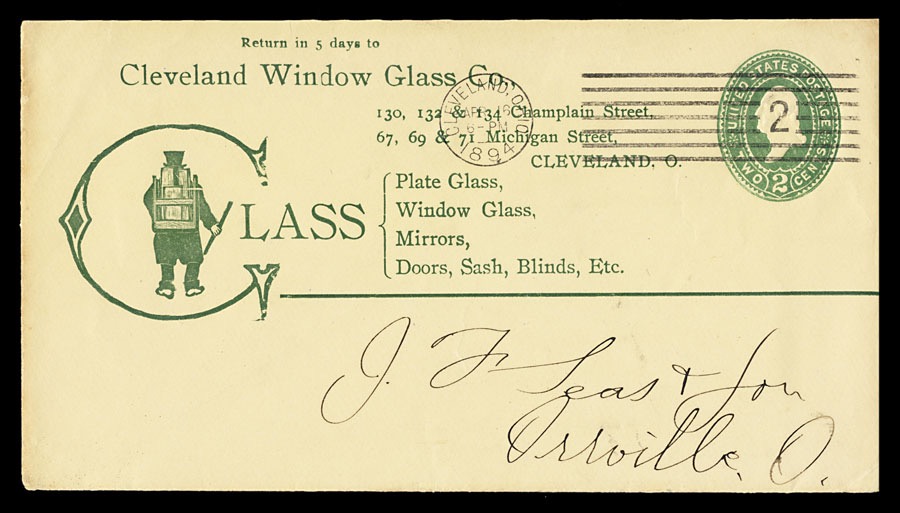 Return in 5 days to
Cleveland Window Glass Co.
130, 132 & 134 Champlain Street,
67, 69 & 71 Michigan Street,
CLEVELAND, O.
CLEVELAND, OHIO
APR 16
6-PM
1894
UNITED STATES POSTAGE
2
TWO 2 CENTS
GLASS
Plate Glass,
Window Glass,
Mirrors,
Doors, Sash, Blinds, Etc.
J. F. Seas & Son
Orrville, O.